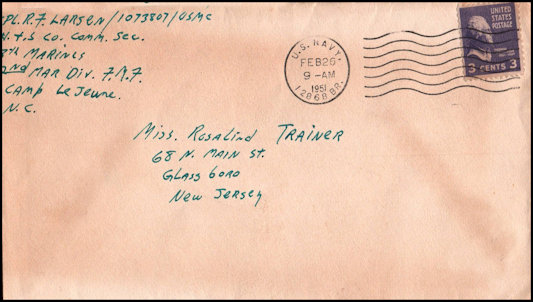 PL. R.F. LARSEN/1073807/USMC
H.+S Co. Comm. Sec.
8TH MARINES
2ND MAR DIV. F.M.F.
CAMP LeJeune.
N.C.
U.S. NAVY
FEB 26
9-AM
1951
12868 BR.
UNITED STATES POSTAGE
3 CENTS 3
Miss. Rosalind TRAINER
68 N. MAIN ST.
GLASSboro
New Jersey